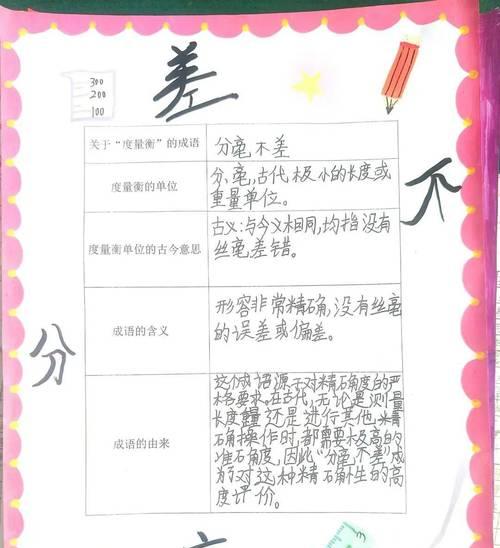 差
300
200
100
关于“度量衡”的成语
分毫不差
度量衡的单位
分,毫,古代极小的长度或
重量单位。
不
度量衡单位的古今意思
古义:与今义相同,均指没有
丝毫差错。
分
成语的含义
形容非常精确,没有丝毫
的误差或偏差。
成语的由来
这个成语源于对精确度的严
格要求。在古代,无论是测量
长度重量还是进行其他精
确操作时,都需要极高的
准确度,因此“分毫不差”成
为对这种精确性的高
度评价。